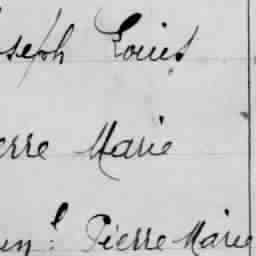 oseph Louis
erre Marie
Pierre Marie